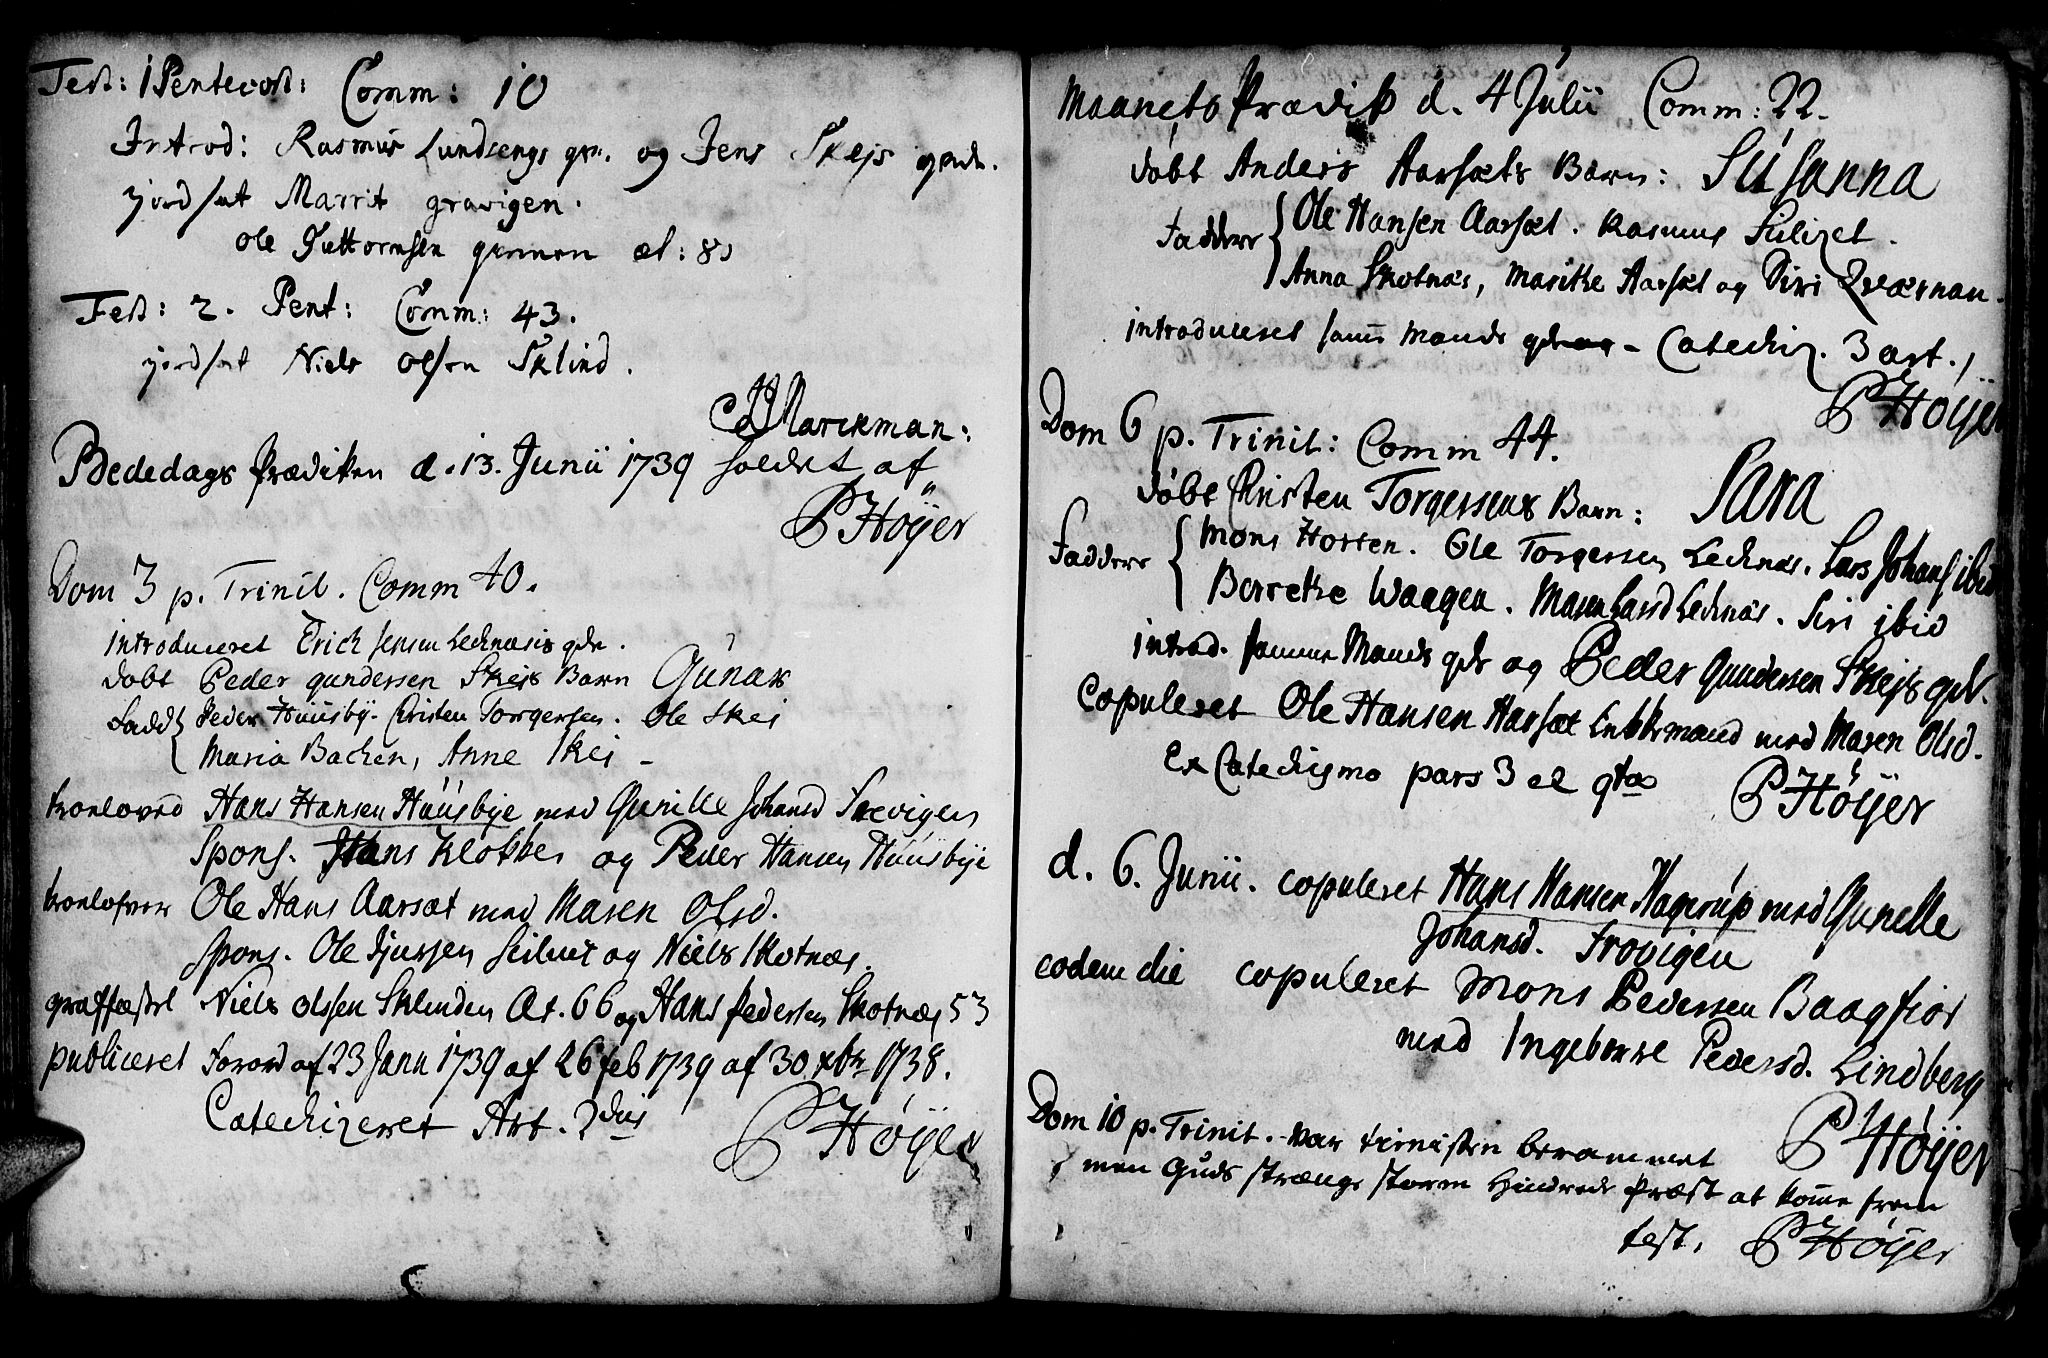 Fest: 1 Pentecost: Comm: 10
Introd: Rasmus Lundsengs qv. og Jens Skejs qvde.
jordsat Marrit gravigen.
Ole Guttormsen æt: 81
Fest: 2. Pent: Comm: 43.
jordsat Niels olsen Sklind.
Marckman:
Bededags Prædiken d. 13. Junii 1739 holdet af
P Høÿer
Dom 3 p. Trinit. Comm 40.
introduceret Erich Jensen Lecknæsis qde.
døbt Peder gundersen Skejs Barn Gunar
Fadd Peder Huusbÿ. Christen Torgersen. Ole Skei
Maria Backen, Anne Skei
troeloved Hans Hansen Huusbÿe med Gunille Johansd
Spons. Hans Klokker og Peder Hansen Huusbÿe
troelofver Ole Hans Aarsæt med Maren Olsd.
Spons. Ole og Niels Skotnæs.
graffæstet Niels olssen Sklinden Æt. 66 og Hans Pedersen Skotnæs 53
publiceret Forord af 23 Janu 1739 af 26 feb 1739 af 30 xbr 1738.
Catechizeret Art. 2dus P Høÿer
Maanets Prædik d. 4 Julii Comm: 22.
døbt Anders Aarsæts Barn: Susanna
Faddere Ole Hansen Aarsæt. Rasmus
Anna Skotnæs, Maritte Aarsæt og Siri Qværnan.
introduceret samme Mands Catechiz. 3 art.
P Høÿer
Dom 6 p. Trinit: Comm 44.
døbt Christen Torgersens Barn: Sara
Faddere Mons Horsen. Ole Torgersen Lecknæs. Lars Johans ibid
Borrette Waagen. Maren Larsd Lecknæs. Siri ibid
introd. samme Mands qde og Peder Gundersen Skejs qde.
Copuleret Ole Hansen Aarsæt Enkkemand med Maren Olsd.
Ex Catechismo pars 3 et 4ta P Høÿer
d. 6. Junii. copuleret Hans Hansen Hagerup med Gunelle
Johansd.
eodem die copuleret Mons Pederssen Baagfior
med Ingeborre Pedersd. Lindberg
P Høÿer
Dom 10 p. Trinit. var tienisten berammet
men Guds strænge storm Hindrede Præst at komme frem
test. P Høÿer